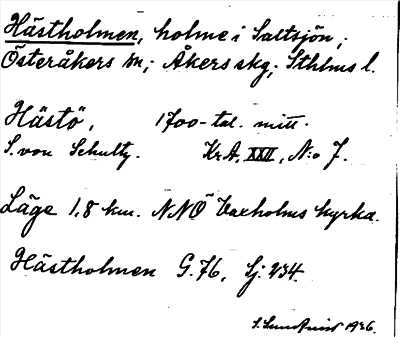 Hästholmen, holme i Saltsjön,;
Österåkers sn; Åkers skg; Sthlms l.
Hästö, 1700-tal. mitt.
S. von Schultz. Kr.A, XXII, N:o 7.
Läge 1,8 km. NNÖ Vaxholms kyrka.
Hästholmen G. 76, Sj: 234.
S. Sundqvist 1926.